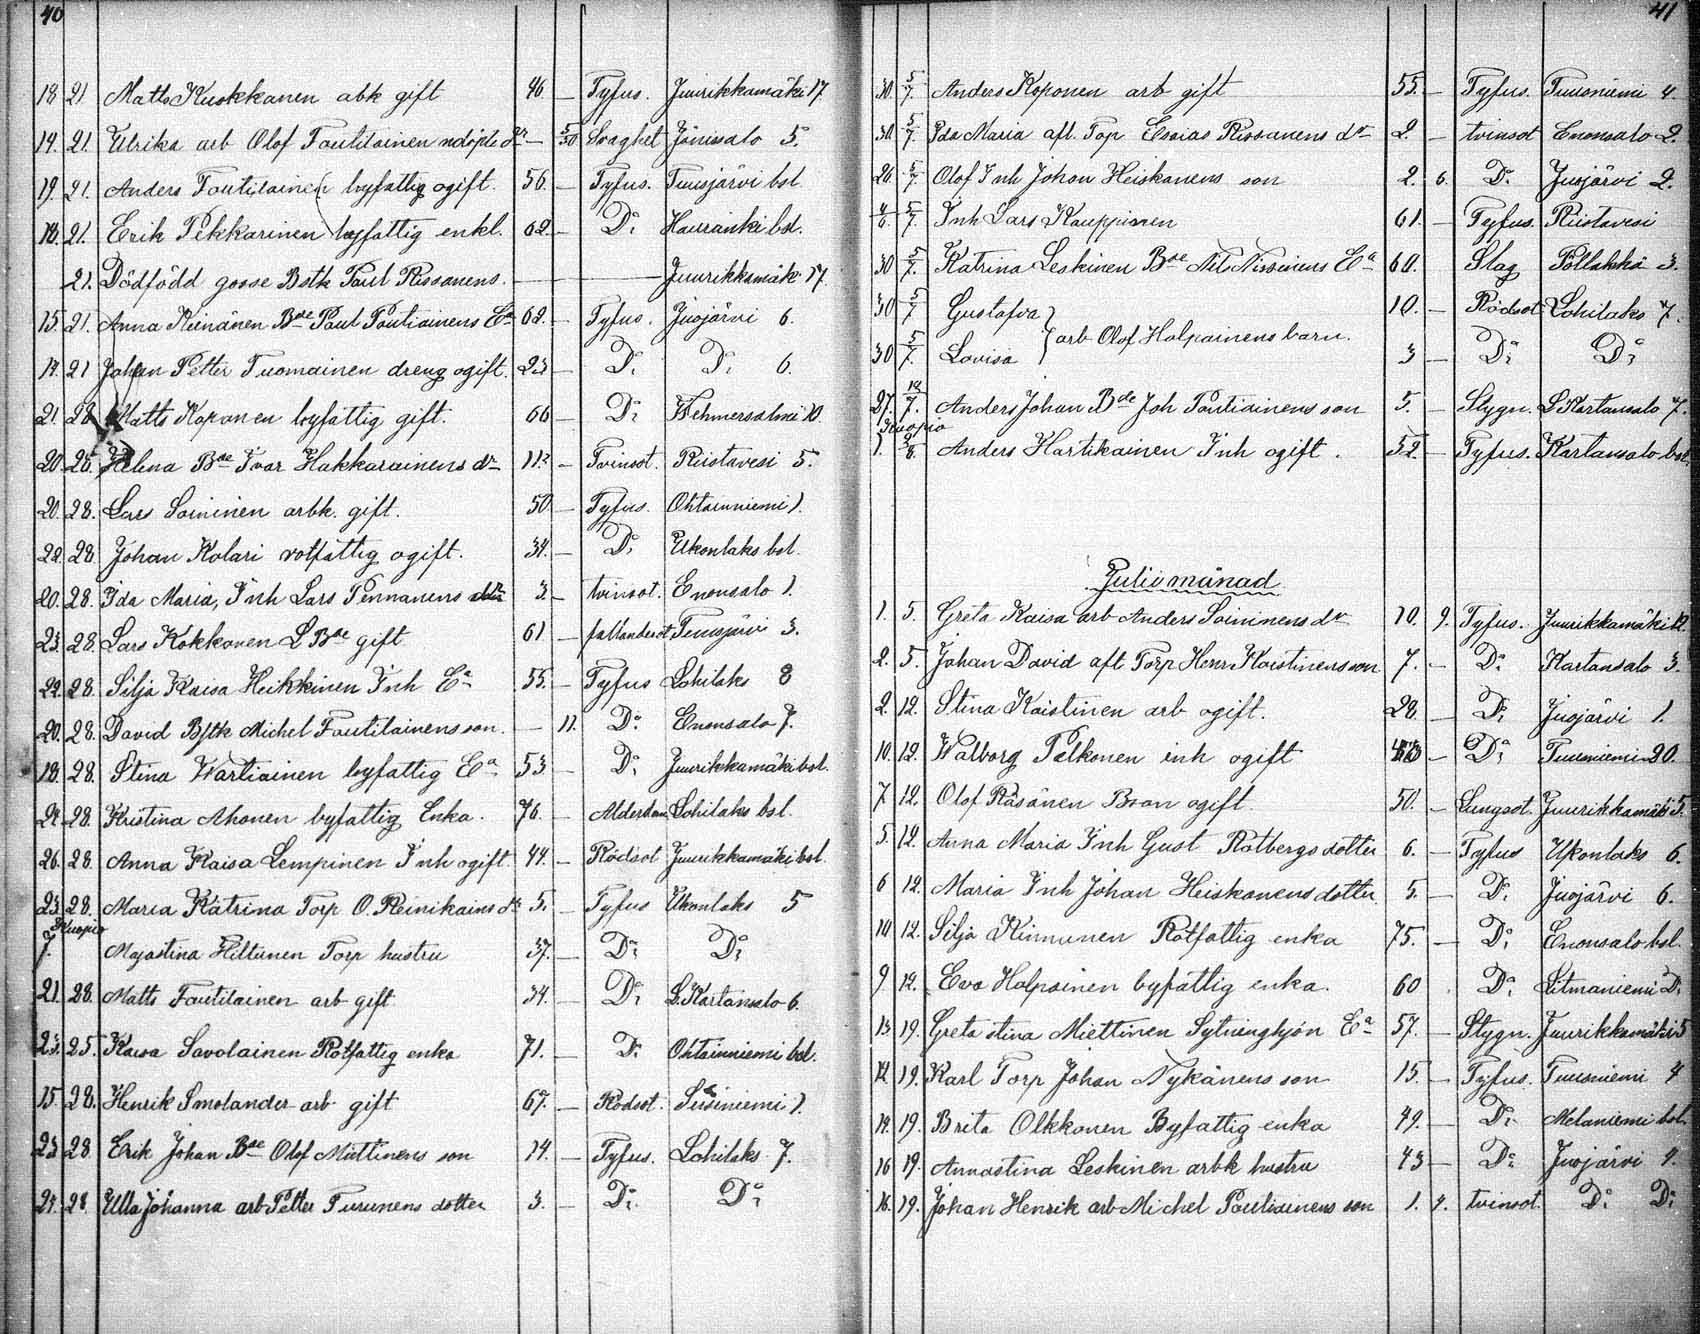 40
18 21 Matts Kuokkanen abk gift 46 — Tyfus. Juurikkamäki 17
14. 21. Ulrika arb Olof Toutilainen nödöpte dr — 5/30 Svaghet Jänissalo 5.
19. 21. Anders Toutilainen byfattig ogift. 56. — Tyfus. Tuusjärvi bsl
18. 21. Erik Pekkarinen byfattig enkl. 62. — Do Hauranki bsl.
21. Dödfödd gosse Bstk Paul Rissanens. — Juurikkamäk 17
15. 21. Anna Reinänen Bde Paul Poutiainens Ea 62. — Tyfus. Juojärvi 6.
14. 21 Johan Petter Tuomainen dreng ogift. 23 — Do Do 6.
21. 28 Matts Koponen byfattig gift. 66 — Do Wehmersalmi 10.
20. 28. Helena Bde Ivar Hakkarainens dr 11 — Tvinsot. Riistavesi 5.
20. 28. Lars Soininen arbk. gift. 50 — Tyfus. Ohtaanniemi 1.
22. 28. Johan Kolari rotfattig ogift. 34. — Do Ukonlaks bsl.
20. 28. Ida Maria, Inh Lars Pennanens dotter 3. — tvinsot. Enonsalo 1.
23. 28. Lars Kokkonen L Bde gift 61. — fallanderot Tuusjärvi 3.
22. 28. Silja Kaisa Heikkinen Inh Ea 55. — Tyfus Lohilaks 8
20. 28. David Bstk Michel Toutilainens son. — 11. Do Enonsalo 7.
18. 28. Stina Wartiainen byfattig Ea 53. — Do Juurikkamäki bsl.
24. 28. Kristina Ahonen byfattig Enka. 76. — Alderdom Lohilaks bsl.
26. 28. Anna Kaisa Lempinen Inh ogift 44. — Rödsot Juurikkamäki bsl.
23. 28. Maria Katrina Torp O. Reinikains dr 5. — Tyfus Ukonlaks 5
Kuopio
7. Majastina Hiltunen Torp hustru 37. — Do Do
21. 28. Matts Toutilainen arb gift 34. — Do L. Kartansalo 6.
23. 25. Kaisa Savolainen Rotfattig enka 71. — Do Ohtaanniemi bsl.
15. 28. Henrik Smolander arb gift 67. — Rödsot. Susiniemi 1.
23 28. Erik Johan Bde Olof Miettinens son 14. — Tyfus. Lohilaks 7.
24. 28. Ulla Johanna arb Petter Turunens dotter 3. — Do Do
41
30. 5/7. Anders Koponen arb gift 55. — Tyfus. Tuusniemi 4.
30. 5/7. Ida Maria aft. Torp Esaias Rissanens dr 2. — tvinsot Enonsalo 2.
26. 5/7. Olof Inh Johan Heiskanens son 2. 6. Do Juojärvi 2.
4/6. 5/7. Inh Lars Kauppinen 61. — Tyfus. Riistavesi
30 5/7. Katrina Leskinen Bde Nils Nissinens Ea 60. — Slag Pölläkkä 3.
30 5/7 Gustafva 10. — Rödsot Lohilaks 7.
arb Olof Halpainens barn.
30 5/7. Lovisa 3 — Do Do
27. 12/7. Anders Johan Bde Joh Poutiainens son 5. — Stygn. L Kartansalo 7.
Kuopio
1. Anders Hartikainen Inh ogift. 52. — Tyfus. Kartansalo bsl.
Julii månad
1. 5. Greta Kaisa arb Anders Soininens dr 10. 9. Tyfus. Juurikkamäki 12
2. 5. Johan David aft Torp Henr. Koistinens son 7. — Do Kartansalo 3.
2. 12. Stina Koistinen arb ogift. 28. — Do Juojärvi 1.
10. 12. Walborg Pelkonen inh ogift — Do Tuusniemi 20.
7 12. Olof Räsänen Bson ogift. 50. — Lungsot. Juurikkamäki 5.
5 12. Anna Maria Inh Gust Rotbergs dotter 6. — Tyfus Ukonlaks 6.
6 12. Maria Inh Johan Heiskanens dotter 5. — Do Juojärvi 6.
10 12. Silja Kinnunen Rotfattig enka 75. — Do Enonsalo bsl.
9. 12. Eva Halpainen byfattig enka. 60 Do Litmaniemi Do
13 19. Greta Stina Miettinen Sytninghjon Ea 57. — Stygn. Juurikkamäki 5
12. 19. Karl Torp Johan Nykänens son 15. — Tyfus. Tuusniemi 4
14. 19. Brita Olkkonen Byfattig enka 49. — Do Melaniemi bsl.
16 19. Annastina Leskinen arbk hustru 43 — Do Juojärvi 4.
16. 19. Johan Henrik arb Michel Poutiainens son 1. 4. tvinsot. Do Do